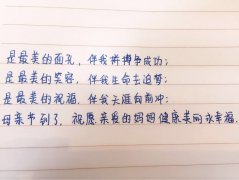 是最美的面孔，伴我拼搏争成功；
是最美的笑容，伴我生命去追梦；
是最美的祝福，伴我天涯向前冲；
母亲节到了，祝愿亲爱的妈妈健康美丽永幸福.